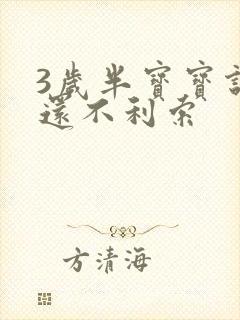 3歲半寶寶
還不利索
方清海